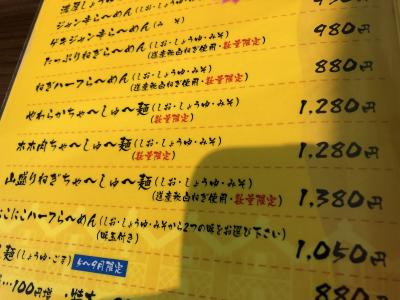 ジャン辛ら〜めん(しお・しょうゆ・みそ)
ゲキジャン辛ら〜めん(みそ) 980円
たっぷりねぎら〜めん(しお・しょうゆ・みそ)
(道産軟白ねぎ使用・数量限定)
ねぎハーフら〜めん(しお・しょうゆ・みそ) 880円
(道産軟白ねぎ使用・数量限定)
やわらかちゃ〜しゅ〜麺(しお・しょうゆ・みそ) 1,280円
(数量限定)
ホホ肉ちゃ〜しゅ〜麺(しお・しょうゆ・みそ) 1,280円
(数量限定)
山盛りねぎちゃ〜しゅ〜麺(しお・しょうゆ・みそ) 1,380円
(道産軟白ねぎ使用・数量限定)
こにこハーフら〜めん(しお・しょうゆ・みそから2つの味をお選び下さい)
(味玉付き) 1,050円
麺(しょうゆ・ごま) 5〜9月限定
…100円増 880